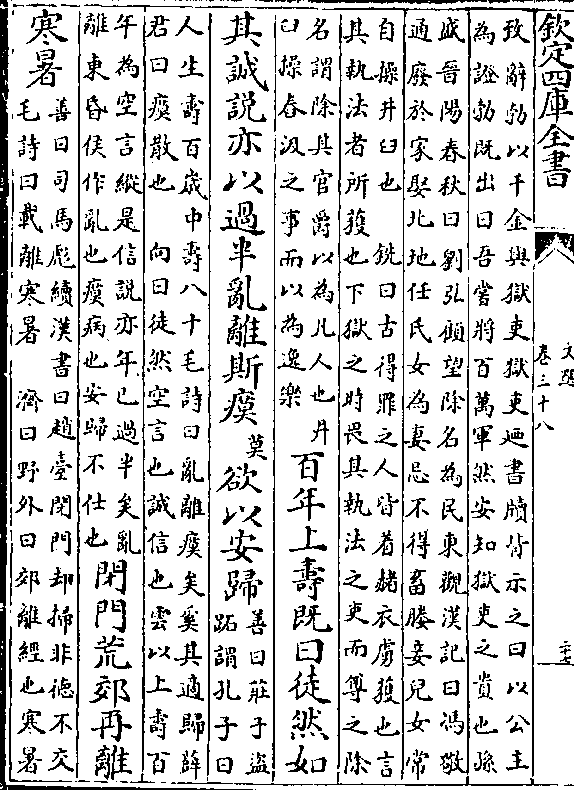 欽定四庫全書
文選
卷三十八
致辭勃以千金與獄吏獄吏廼書牘背示之曰以公主
為證勃既出曰吾嘗將百萬軍然安知獄吏之貴也孫
盛晉陽春秋曰劉弘顧望除名為民東觀漢記曰馮敬
通廢於家娶北地任氏女為妻忌不得畜媵妾兒女常
自操井臼也　銑曰古得罪之人皆着赭衣虜獲也言
其執法者所獲也下獄之時畏其執法之吏而尊之除
名謂除其官爵以為凡人也井
臼操舂汲之事而以為逸樂
百年上壽既曰徒然如
其誠説亦以過半亂離斯瘼莫欲以安歸
善曰莊子盜
跖謂孔子曰
人生壽百歲中壽八十毛詩曰亂離瘼矣奚其適歸薛
君曰瘼散也　向曰徒然空言也誠信也雲以上壽百
年為空言縱是信説亦年已過半矣亂
離東昏侯作亂也瘼病也安歸不仕也
閉門荒郊再離
寒暑
善曰司馬彪續漢書曰趙臺閉門却掃非德不交
毛詩曰載離寒暑　濟曰野外曰郊離經也寒暑